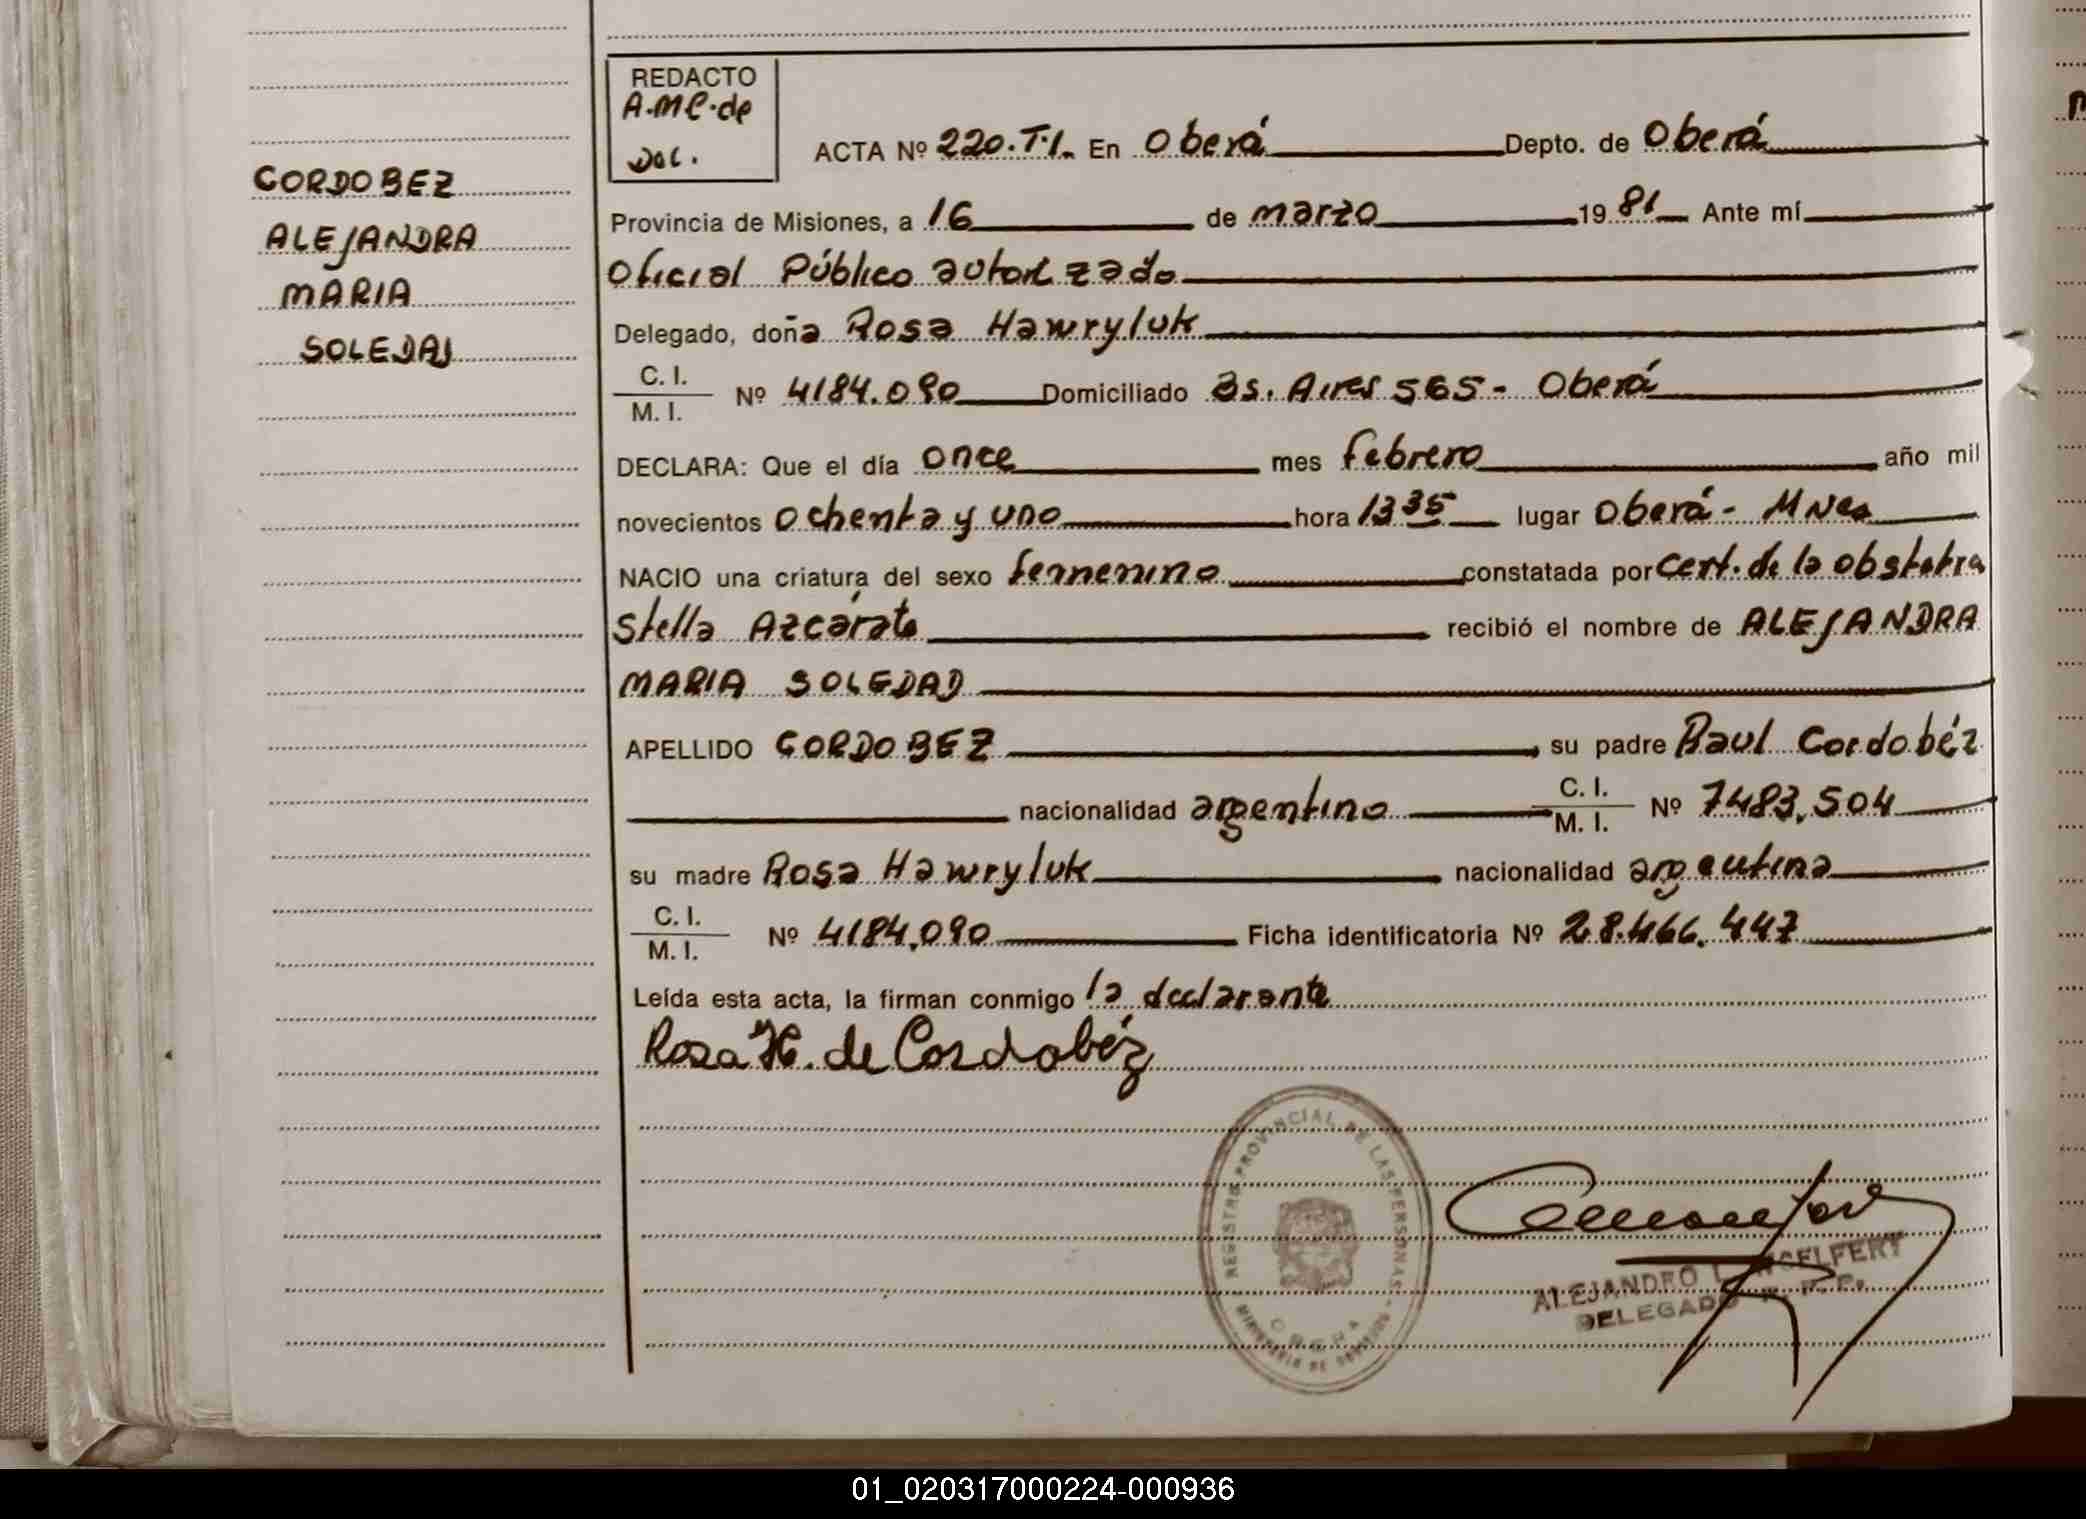 REDACTO
A.M.C. de
DOL.
CORDOBEZ
ALEJANDRA
MARIA
SOLEDAD
ACTA Nº 220.T.1. En Oberá Depto. de Oberá
Provincia de Misiones, a 16 de marzo 1981 Ante mí
Oficial Público autorizado
Delegado, doña Rosa Hawryluk
C. I.
M. I. Nº 4184.090 Domiciliado Bs. Aires 565 - Oberá
DECLARA: Que el día once mes febrero año mil
novecientos ochenta y uno hora 13 35 lugar Oberá - Mnes
NACIO una criatura del sexo femenino constatada por Cert. de la obstetra
Stella Azcárate recibió el nombre de ALEJANDRA
MARIA SOLEDAD
APELLIDO CORDOBEZ su padre Raul Cordobéz
nacionalidad argentino C. I.
M. I. Nº 7483.504
su madre Rosa Hawryluk nacionalidad argentina
C. I.
M. I. Nº 4184.090 Ficha identificatoria Nº 28.466.447
Leída esta acta, la firman conmigo la declarante
Rosa H. de Cordobéz
REGISTRO PROVINCIAL DE LAS PERSONAS
MINISTERIO DE GOBIERNO
OBERA
ALEJANDRO
DELEGADO
01_020317000224-000936